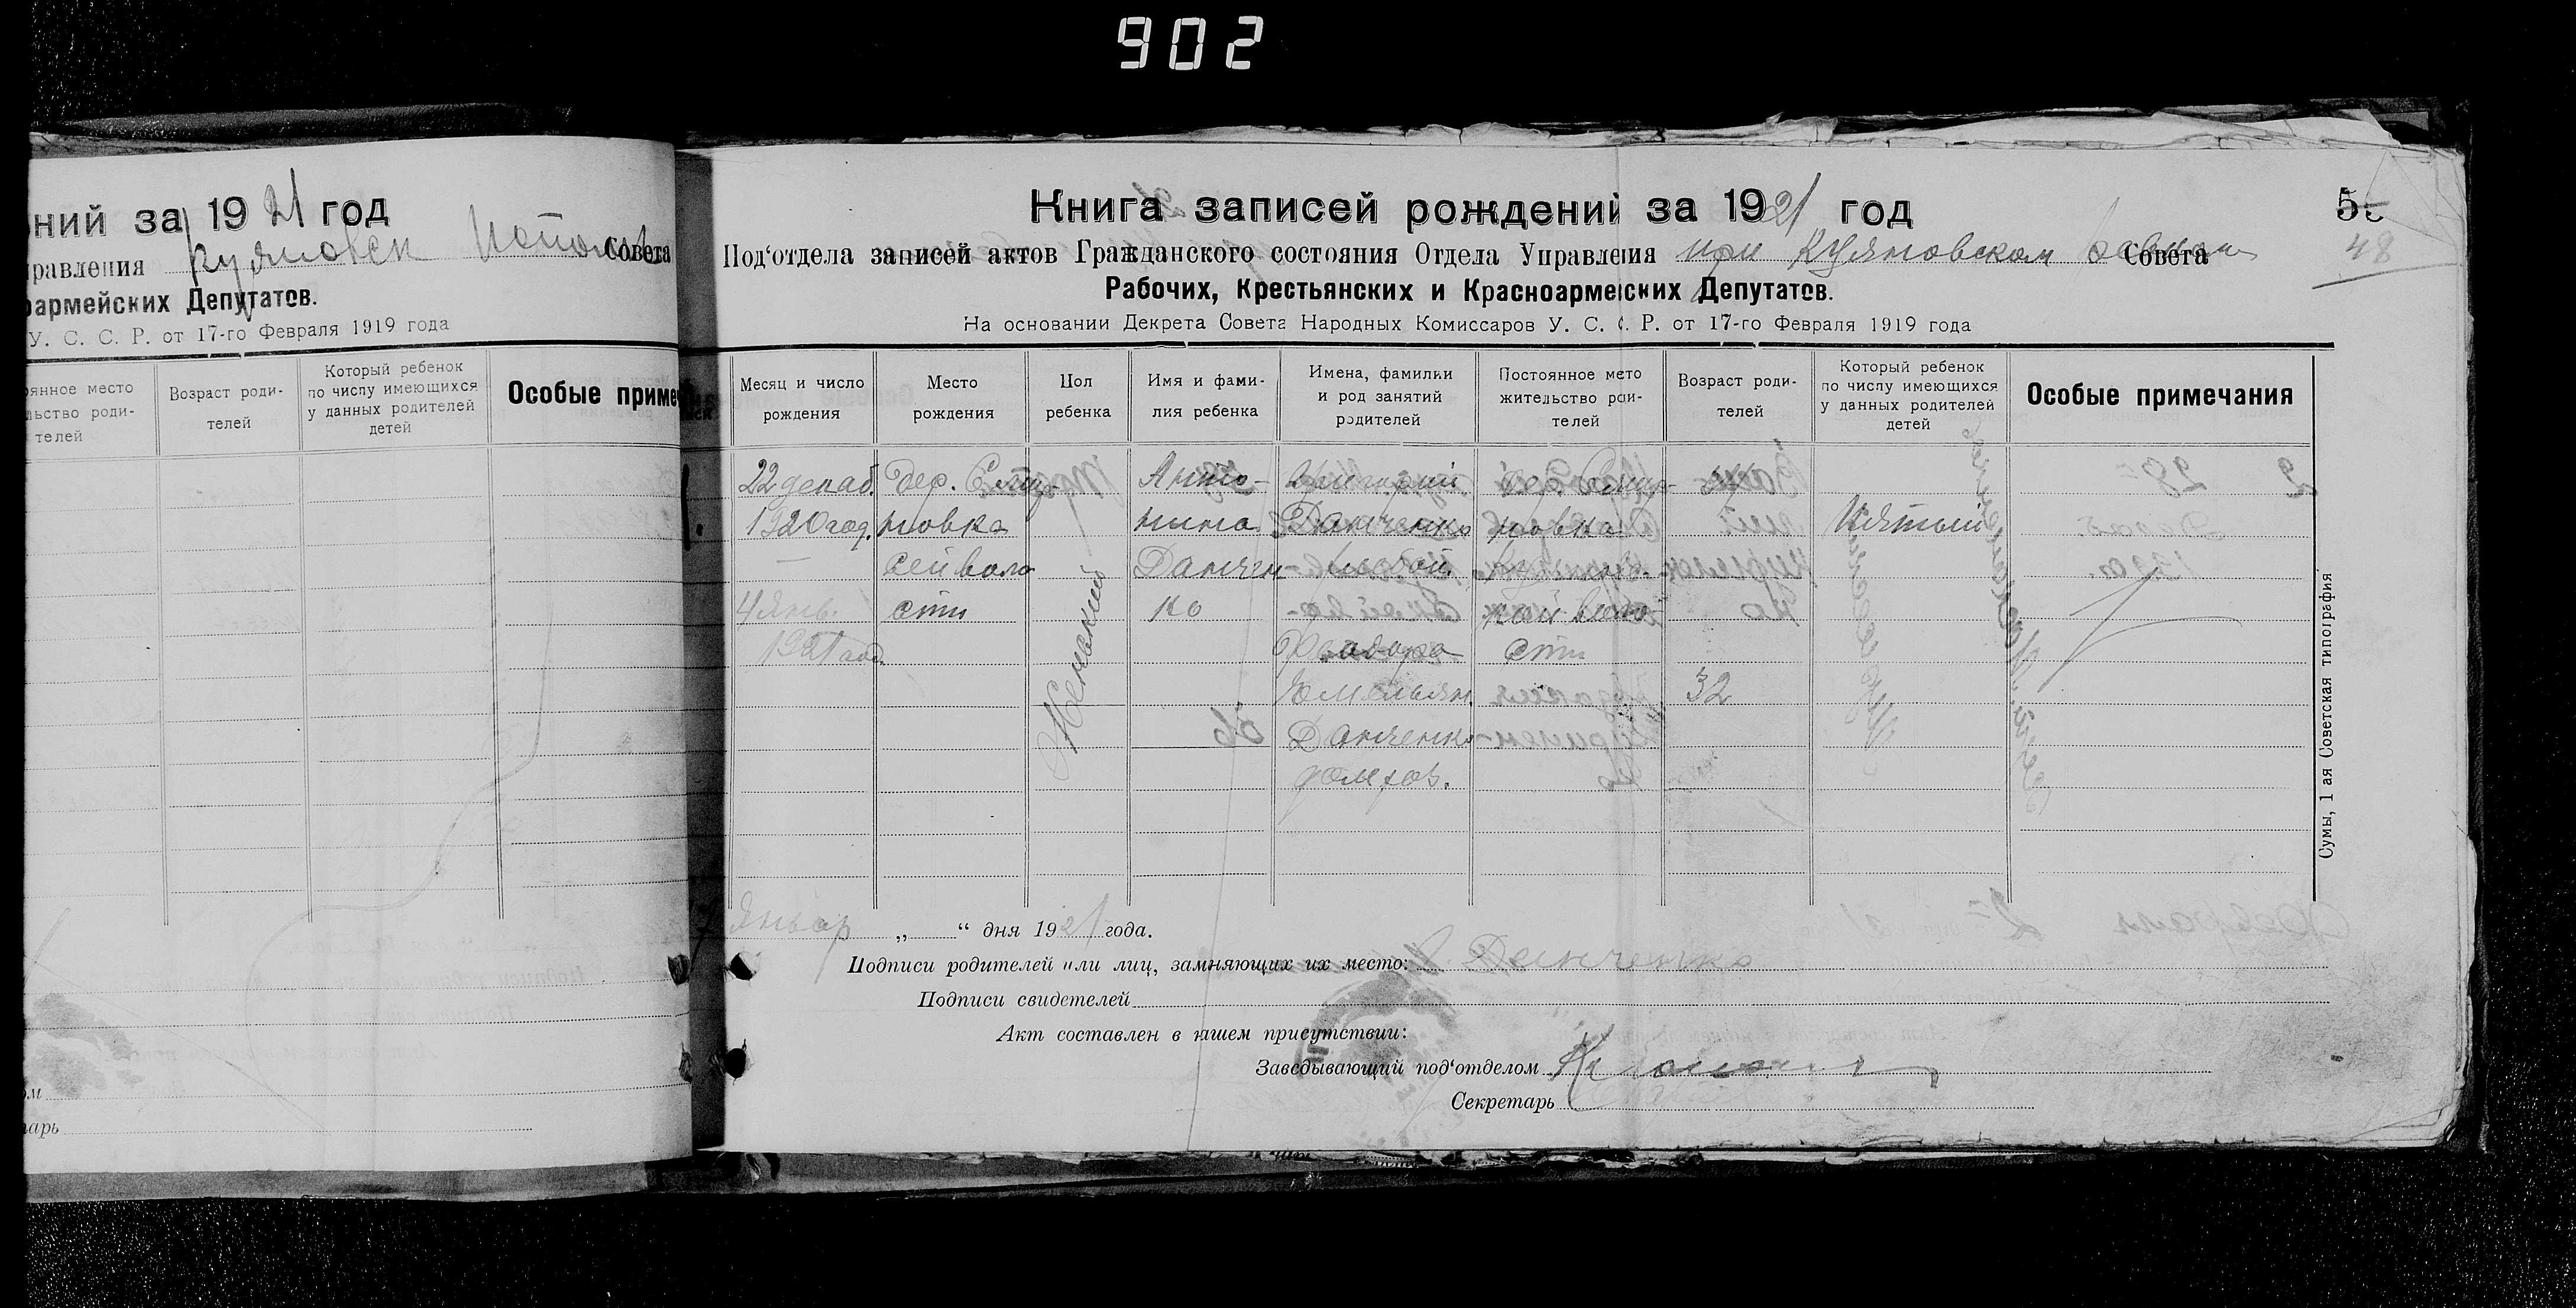 902
ний за 1921 год
равления Куяновск Исполк Совета
оармейских Депутатов.
У. С. С. Р. от 17-го Февраля 1919 года
оянное место
льство роди-
телей
Возраст роди-
телей
Который ребенок
по числу имеющихся
у данных родителей
детей
Особые приме
ом
тарь
Книга записей рождений за 1921 год
5
48
Под‘отдела записей актов Гражданского состояния Отдела Управления при Куяновском Совета
Рабочих, Крестьянских и Красноармейских Депутатов.
На основании Декрета Совета Народных Комиссаров У. С. С. Р. от 17-го Февраля 1919 года
Месяц и число
рождения
Место
рождения
Пол
ребенка
Имя и фами-
лия ребенка
Имена, фамилии
и род занятий
родителей
Постоянное место
жительство роди-
телей
Возраст роди-
телей
Который ребенок
по числу имеющихся
у данных родителей
детей
Особые примечания
1.
22 декаб.
1920 год.
—
4 янв.
1921 год.
Дер. Смир-
новка
сей воло
сти
Женский
Анто-
нина
Данчен
ко
Григорий
Данченко
Емельян.
Данченко
домхоз.
Дер. Смир-
новка
кой воло
сти
32
Пятый
7 Январ „ “ дня 1921 года.
Подписи родителей или лиц, замняющих их место: Данченко
Подписи свидетелей
Акт составлен в нашем присутствии:
Заведывающий под‘отделом
Секретарь
Сумы, 1 ая Советская типография